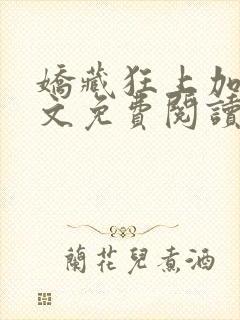 嬌藏狂上加
文免費閱讀
蘭花兒煮酒